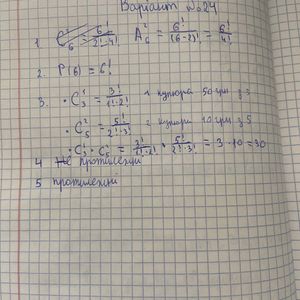 Варіант №24
1. C₆² = 6!/(2!·4!) A₆² = 6!/(6-2)! = 6!/4!
2. P(6) = 6!
3. · C₃¹ = 3!/(1!·2!) 1 купюра 50 грн з 3
· C₅² = 5!/(2!·3!) 2 купюри 10 грн з 5
· C₃¹ · C₅² = 3!/(1!·2!) · 5!/(2!·3!) = 3·10 = 30
4 Не протилежні
5 протилежні